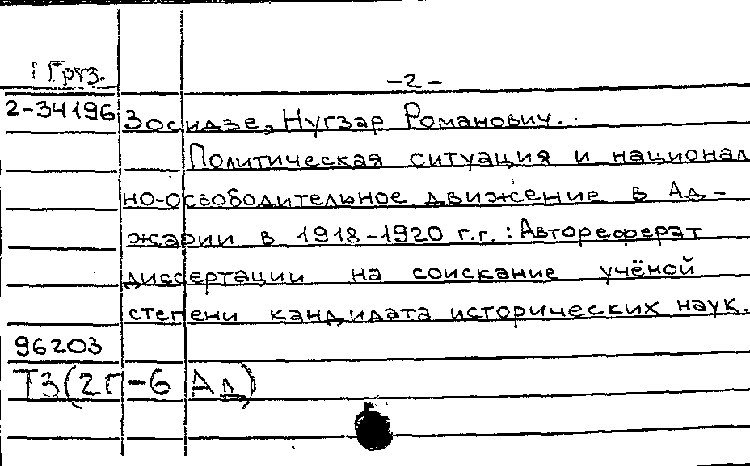 1 Груз.
-2-
2-34196 Зосидзе, Нугзар Романович.
Политическая ситуация и национал
но-освободительное движение в Ад-
жарии в 1918-1920 г.г.: Автореферат
диссертации на соискание учёной
степени кандидата исторических наук.
96203
Т3(2Г-6 Ад)